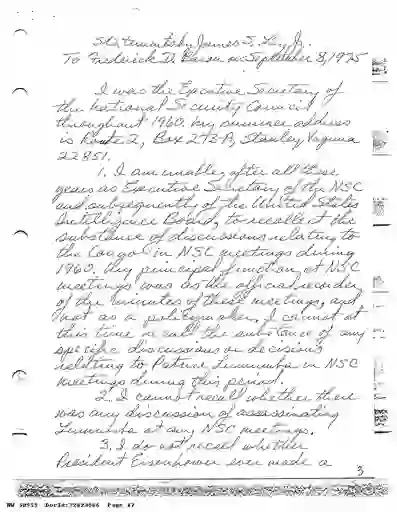 Statements by James S. Lay, Jr.
To Frederick D. Baron on September 8, 1975
I was the Executive Secretary of
the National Security Council
throughout 1960. My summer address
is Route 2, Box 273-A, Stanley Virginia
22851.
1. I am unable, after all these
years as Executive Secretary of the NSC
and subsequently of the United States
Intelligence Board, to recall at the
substance of discussions relating to
the Congo in NSC meetings during
1960. My principal function at NSC
meetings was as the official recorder
of the minutes of these meetings, and
not as a policymaker. I cannot at
this time recall the substance of any
specific discussions or decisions
relating to Patrice Lumumba in NSC
meetings during this period.
2. I cannot recall whether there
was any discussion of assassinating
Lumumba at any NSC meetings.
3. I do not recall whether
President Eisenhower ever made a
3
NW 50955 DocId:32423566 Page 47